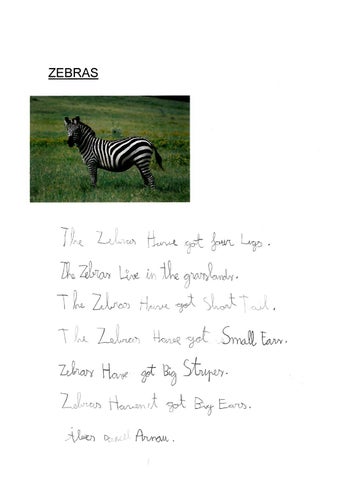 ZEBRAS
The Zebras Have got four Legs.
The Zebras Live in the grasslands.
The Zebras Have got Short Tail.
The Zebras Have got Small Ears.
Zebras Have got Big Stripes.
Zebras Haven't got Big Ears.
Àlex Daniel Arnau.